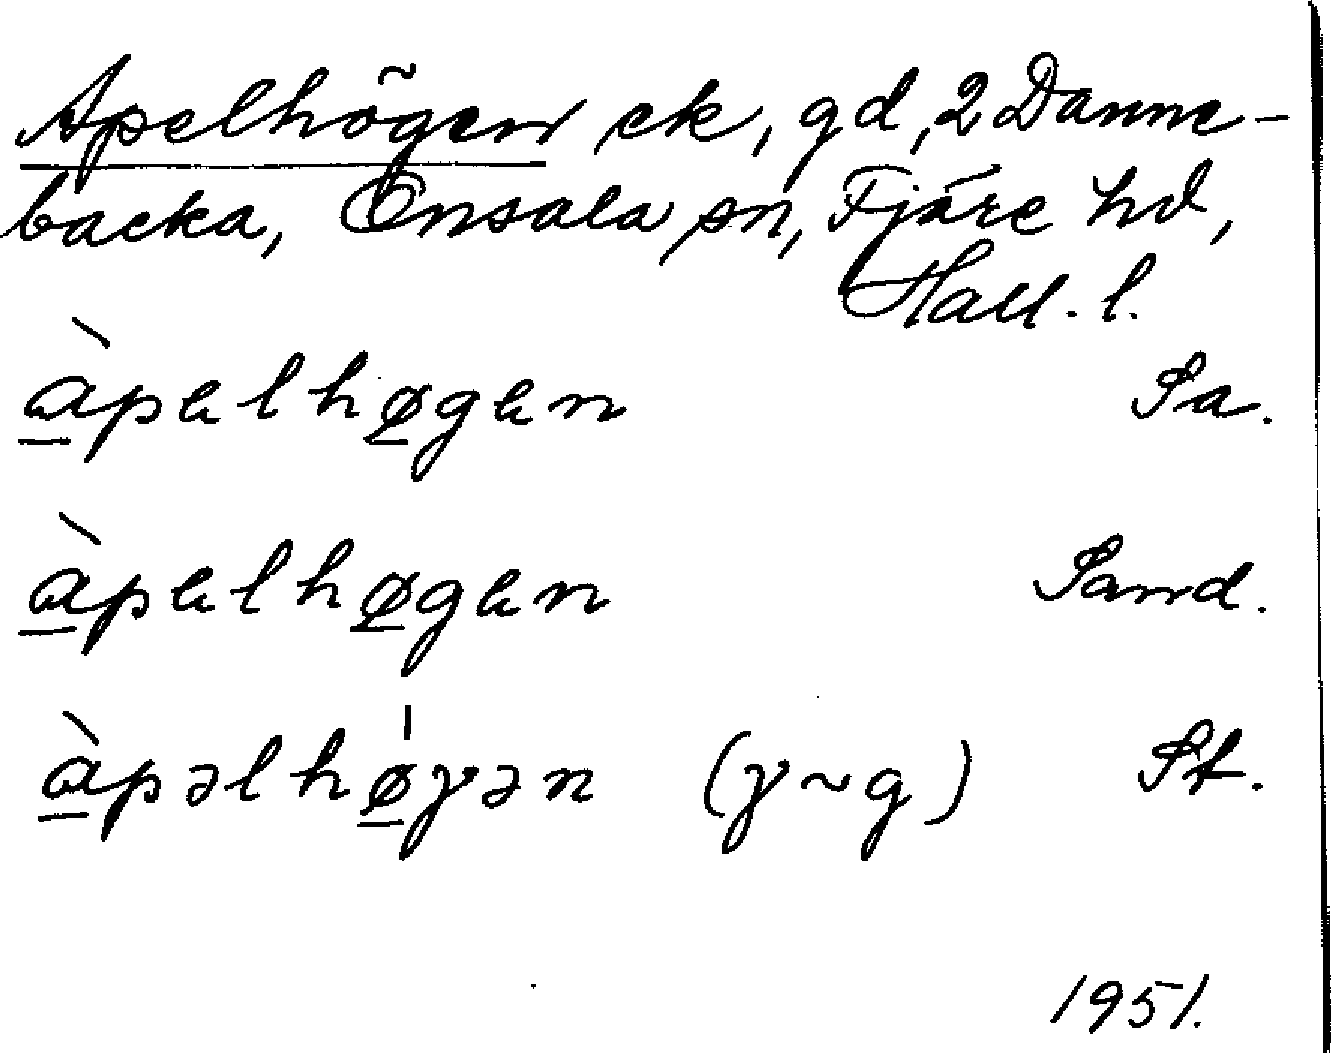 Apelhögen ek, gd, 2 Danne-
backa, Onsala sn, Fjäre hd,
Hall. l.
àpelhøgen Sa.
àpelhøgen Sand.
àpəlhøɣən (ɣ~g) St.
1951.